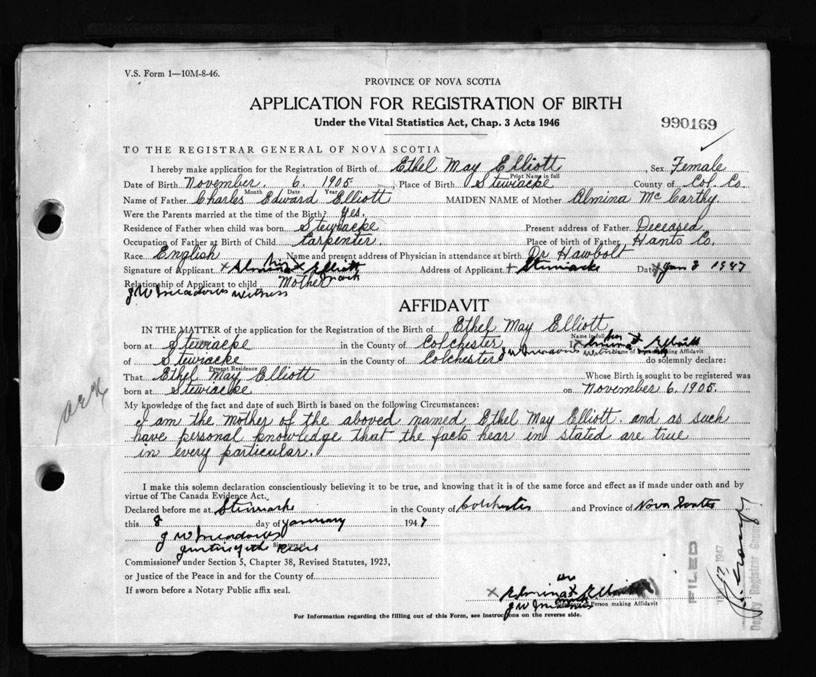 V.S. Form 1—10M-8-46.
PROVINCE OF NOVA SCOTIA
APPLICATION FOR REGISTRATION OF BIRTH
Under the Vital Statistics Act, Chap. 3 Acts 1946
990169
TO THE REGISTRAR GENERAL OF NOVA SCOTIA
I hereby make application for the Registration of Birth of Ethel May Elliott Sex Female
Print Name in full
Date of Birth November 6 1905 Place of Birth Stewiacke County of Col. Co.
Month Date Year
Name of Father Charles Edward Elliott MAIDEN NAME of Mother Almina Mc Carthy
Were the Parents married at the time of the Birth? yes.
Residence of Father when child was born Stewiacke Present address of Father Deceased
Occupation of Father at Birth of Child Carpenter. Place of birth of Father Hants Co.
Race English Name and present address of Physician in attendance at birth Dr Hawbolt
Signature of Applicant x Almina her x Elliott mark Address of Applicant + Stewiacke Date Jan 8 1947
Relationship of Applicant to child Mother
J W Meadows Witness
AFFIDAVIT
IN THE MATTER of the application for the Registration of the Birth of Ethel May Elliott
Name in full
born at Stewiacke in the County of Colchester I Almina her x Elliott
of Stewiacke in the County of Colchester J W Meadows Witness mark do solemnly declare:
Present Residence Name of Person making Affidavit
That Ethel May Elliott Whose Birth is sought to be registered was
born at Stewiacke on November 6, 1905.
My knowledge of the fact and date of such Birth is based on the following Circumstances:
I am the mother of the aboved named Ethel May Elliott. and as such
have personal knowledge that the facts hear in stated are true
in every particular.
I make this solemn declaration conscientiously believing it to be true, and knowing that it is of the same force and effect as if made under oath and by
virtue of The Canada Evidence Act.
Declared before me at Stewiacke in the County of Colchester and Province of Nova Scotia
this 8 day of January 1947
J W Meadows
Justice of the Peace
Commissioner under Section 5, Chapter 38, Revised Statutes, 1923,
or Justice of the Peace in and for the County of
If sworn before a Notary Public affix seal.
x Almina her x Elliott
J W Meadows mark Person making Affidavit
For Information regarding the filling out of this Form, see Instructions on the reverse side.
FILED
1947
Deputy Registrar General